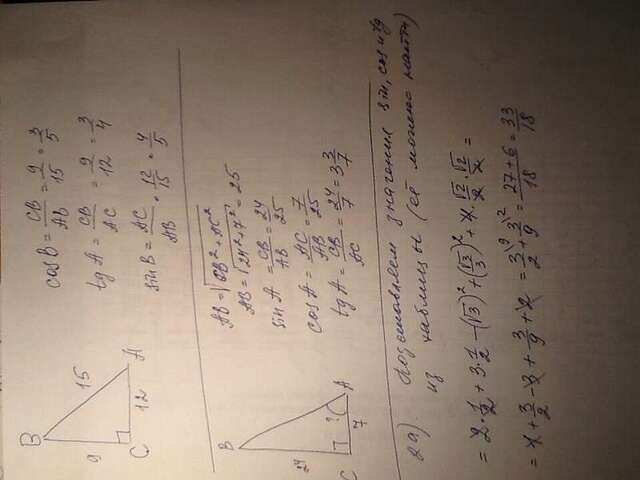 B
15
9
C
12
A
cos B = CB/AB = 9/15 = 3/5
tg A = CB/AC = 9/12 = 3/4
sin B = AC/AB = 12/15 = 4/5
B
24
?
C
7
A
AB = √CB² + AC²
AB = √24² + 7² = 25
sin A = CB/AB = 24/25
cos A = AC/AB = 7/25
tg A = CB/AC = 24/7 = 3 3/7
2a). Подставляем значения sin, cos и tg
из таблицы (её можно найти)
= 2 · 1/2 + 3 · 1/2 − (√3)² + (√3/3)² + 4 · √2/2 · √2/2 =
= 1 + 3/2 − 3 + 3/9 + 2 = 3\9/2 + 3\2/9 = 27 + 6/18 = 33/18